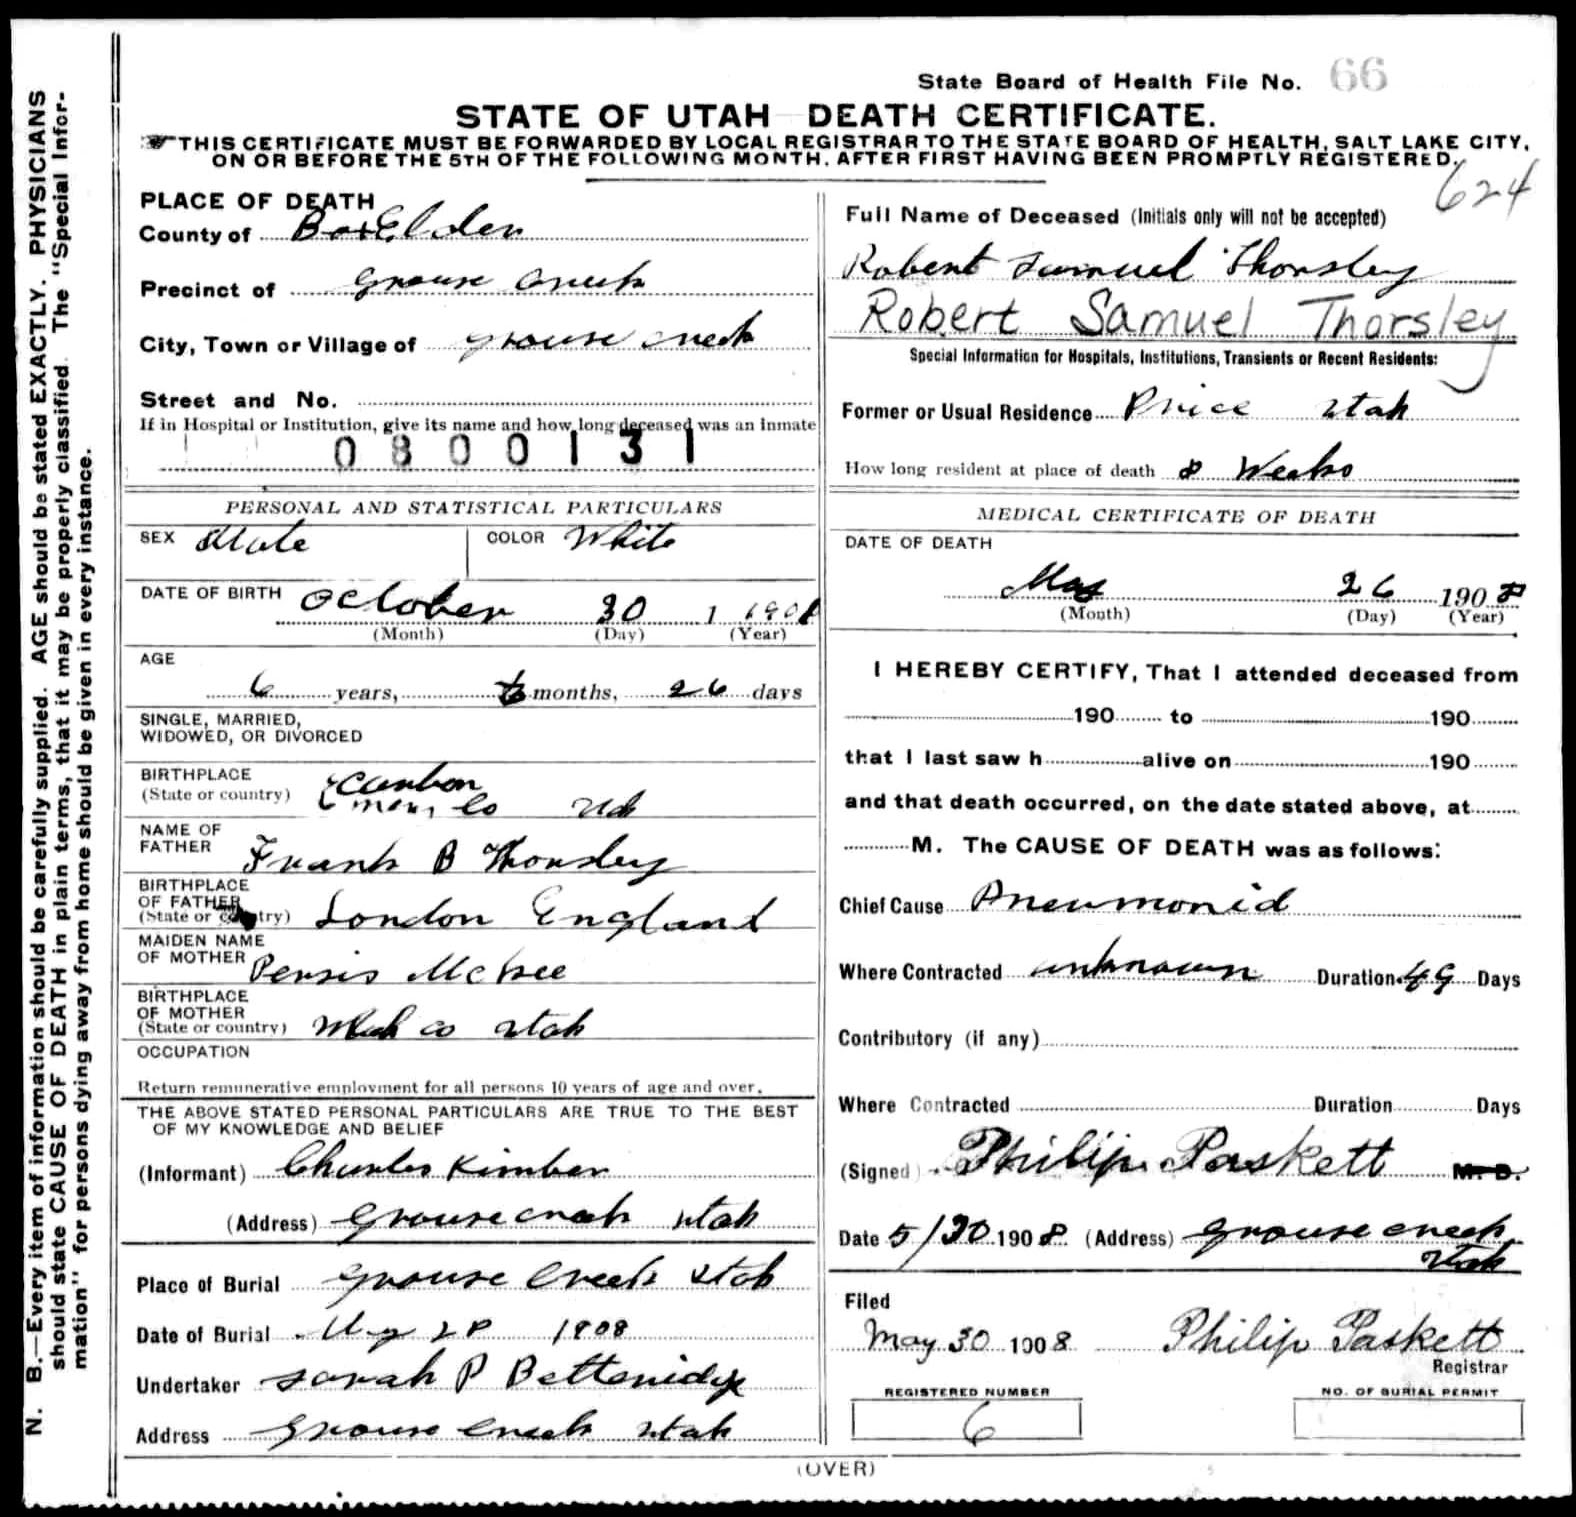 State Board of Health File No. 66
STATE OF UTAH—DEATH CERTIFICATE.
THIS CERTIFICATE MUST BE FORWARDED BY LOCAL REGISTRAR TO THE STATE BOARD OF HEALTH, SALT LAKE CITY,
ON OR BEFORE THE 5TH OF THE FOLLOWING MONTH, AFTER FIRST HAVING BEEN PROMPTLY REGISTERED.
624
N. B.—Every item of information should be carefully supplied. AGE should be stated EXACTLY. PHYSICIANS
should state CAUSE OF DEATH in plain terms, that it may be properly classified. The "Special Infor-
mation" for persons dying away from home should be given in every instance.
PLACE OF DEATH
County of Box Elder
Precinct of Grouse Creek
City, Town or Village of Grouse Creek
Street and No.
If in Hospital or Institution, give its name and how long deceased was an inmate
0800131
PERSONAL AND STATISTICAL PARTICULARS
SEX Male COLOR White
DATE OF BIRTH October 30 1 1901
(Month) (Day) (Year)
AGE
6 years, months, 26 days
SINGLE, MARRIED,
WIDOWED, OR DIVORCED
BIRTHPLACE Carbon
(State or country) Co
NAME OF
FATHER Frank B Thorsley
BIRTHPLACE
OF FATHER
(State or country) London England
MAIDEN NAME
OF MOTHER Persis McKee
BIRTHPLACE
OF MOTHER
(State or country) co Utah
OCCUPATION
Return remunerative employment for all persons 10 years of age and over.
THE ABOVE STATED PERSONAL PARTICULARS ARE TRUE TO THE BEST
OF MY KNOWLEDGE AND BELIEF
(Informant) Charles Kimber
(Address) Grouse creek Utah
Place of Burial Grouse Creek Utah
Date of Burial May 28 1908
Undertaker Sarah P Bettenidge
Address Grouse Creek Utah
Full Name of Deceased (Initials only will not be accepted)
Robert Samuel Thorsley
Robert Samuel Thorsley
Special Information for Hospitals, Institutions, Transients or Recent Residents:
Former or Usual Residence Price Utah
How long resident at place of death 8 Weeks
MEDICAL CERTIFICATE OF DEATH
DATE OF DEATH
May 26 1908
(Month) (Day) (Year)
I HEREBY CERTIFY, That I attended deceased from
190 to 190
that I last saw h alive on 190
and that death occurred, on the date stated above, at
M. The CAUSE OF DEATH was as follows:
Chief Cause Pneumonid
Where Contracted unknown Duration 49 Days
Contributory (if any)
Where Contracted Duration Days
(Signed) Philip Paskett M. D.
Date 5/30 1908 (Address) Grouse Creek
Utah
Filed
May 30 1908 Philip Paskett
Registrar
REGISTERED NUMBER NO. OF BURIAL PERMIT
6
(OVER)